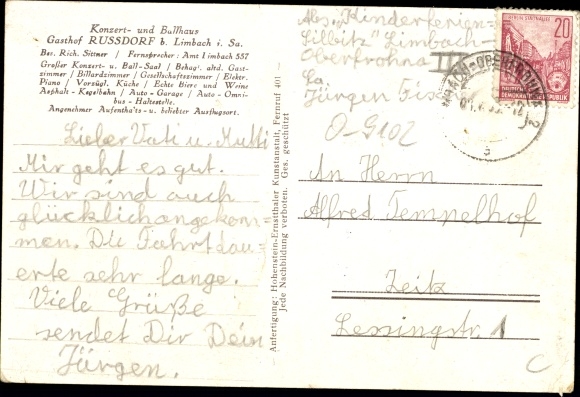 Konzert- und Ballhaus
Gasthof RUSSDORF b. Limbach i. Sa.
Bes. Rich. Sittner / Fernsprecher: Amt Limbach 557
Großer Konzert- u. Ball-Saal / Behagl. altd. Gast-
zimmer / Billardzimmer / Gesellschaftszimmer / Elektr.
Piano / Vorzügl. Küche / Echte Biere und Weine
Asphalt-Kegelbahn / Auto-Garage / Auto-Omni-
bus-Haltestelle.
Angenehmer Aufenthalts- u. beliebter Ausflugsort.
Lieber Vati u. Mutti
Mir geht es gut.
Wir sind auch
glücklich angekom-
men. Die Fahrt dau-
erte sehr lange.
Viele Grüße
sendet Dir Dein
Jürgen.
Anfertigung: Hohenstein-Ernstthaler Kunstanstalt, Fernruf 401 —
Jede Nachbildung verboten. Ges. geschützt
Abs. „Kinderferien-
Limbach-
Oberfrohna III
Sa.
Jürgen
O-9102
An Herrn
Alfred Tempelhof
Zeitz
Lessingstr. 1
C
BERLIN STALINALLEE
20
DEUTSCHE
DEMOKRATISCHE REPUBLIK